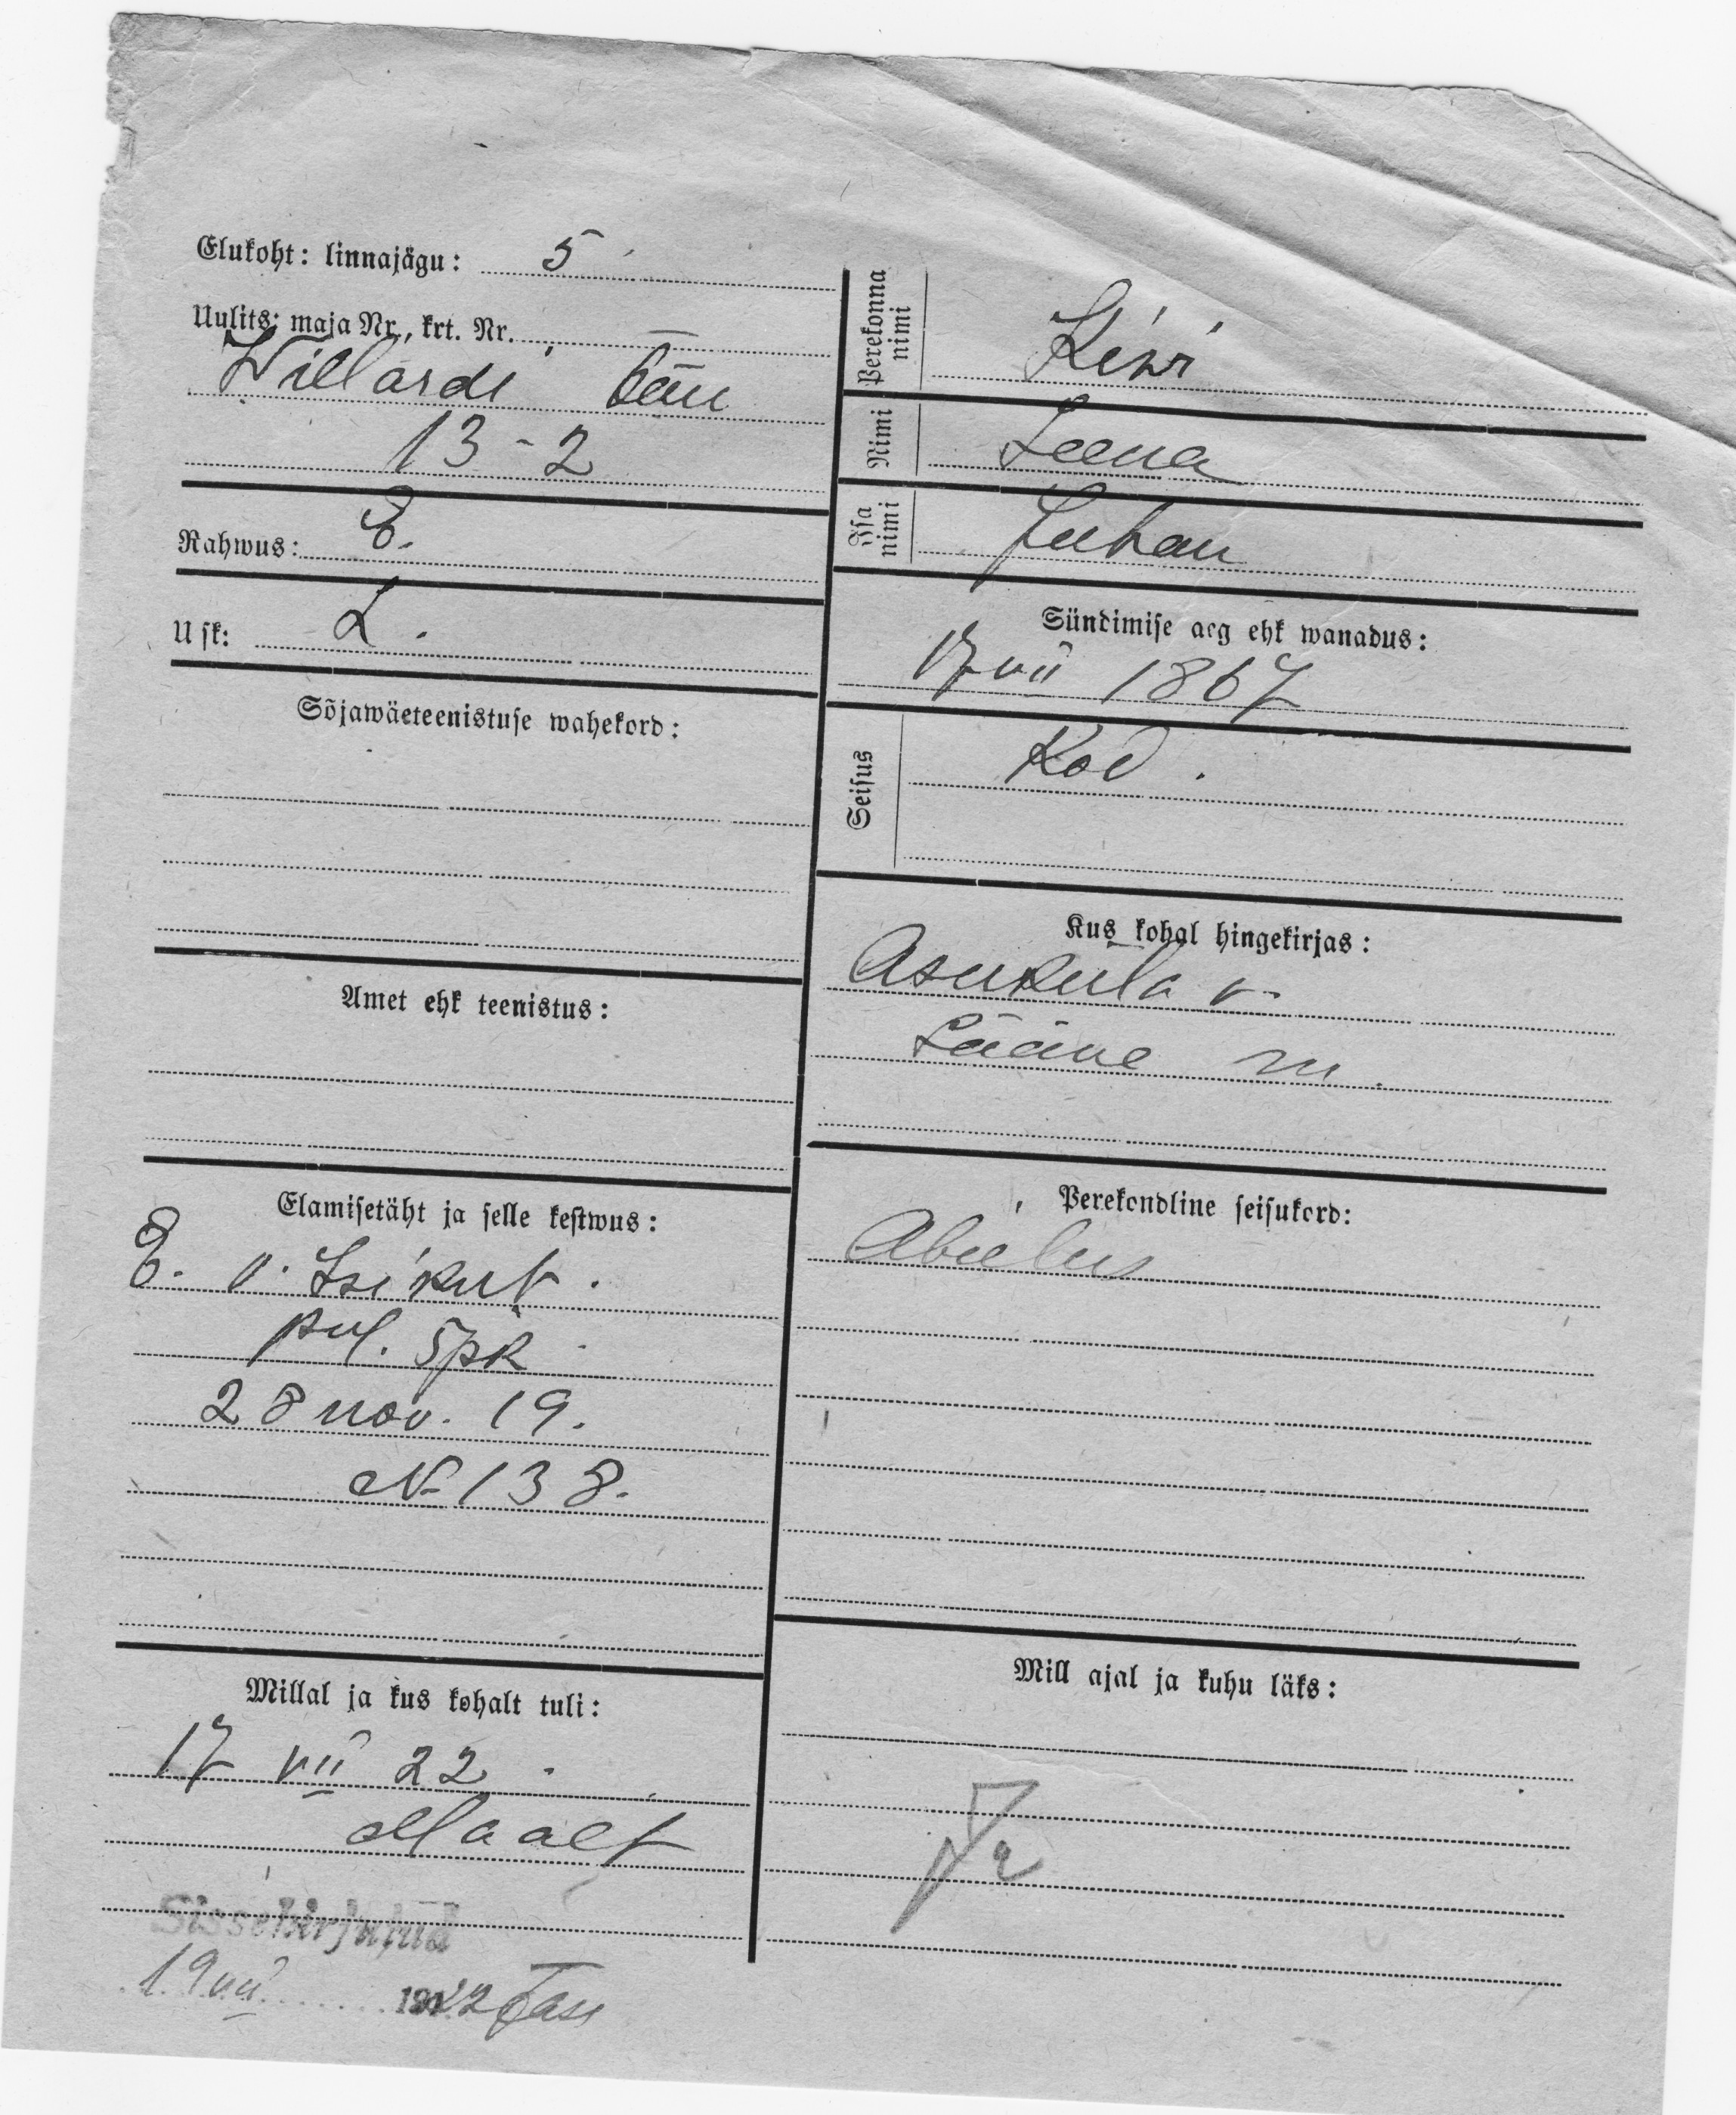 Elukoht: linnajägu: 5
Uulits: maja Nr., krt. Nr.
Willardi tän
13-2
Rahwus: E.
Usk: L.
Sõjawäeteenistuse wahekord:
Amet ehk teenistus:
Elamisetäht ja selle kestwus:
E. v. Isikut.
pol. 5 pk
28 nov. 19.
N-138.
Millal ja kus kohalt tuli:
17 VII 22.
Maalt
Sissekirjutud
19 VII 1922
Perekonna nimi
Kiwi
Nimi
Leena
Isa nimi
Juhan
Sündimise aeg ehk wanadus:
17 VII 1867
Seisus
Kod.
Kus kohal hingekirjas:
Asukula v.
Lääne m.
Perekondline seisukord:
Abielus
Mill ajal ja kuhu läks: